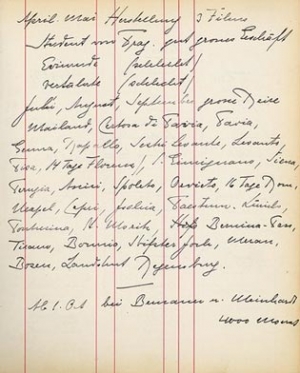 April Mai Herstellung 3 Filme
Student von Prag. gut grosses Geschäft
(schlecht)
(schlecht)
Juli, August, September grosse Reise
Mailand, Certosa di Pavia, Pavia,
Genua, Rapallo, Sestri Levante, Levanto,
Pisa, 14 Tage Florenz, S. Gimignano, Siena,
Perugia, Assisi, Spoleto, Orvieto, 16 Tage Rom,
Neapel, Capri, Ischia, Paestum. Zürich,
Pontresina, St. Moritz, Bernina-Pass,
Tirano, Bormio, Stilfser Joch, Meran,
Bozen, Landshut Regensburg.
Ab 1. Oct bei u. Meinhardt
4000 Monat